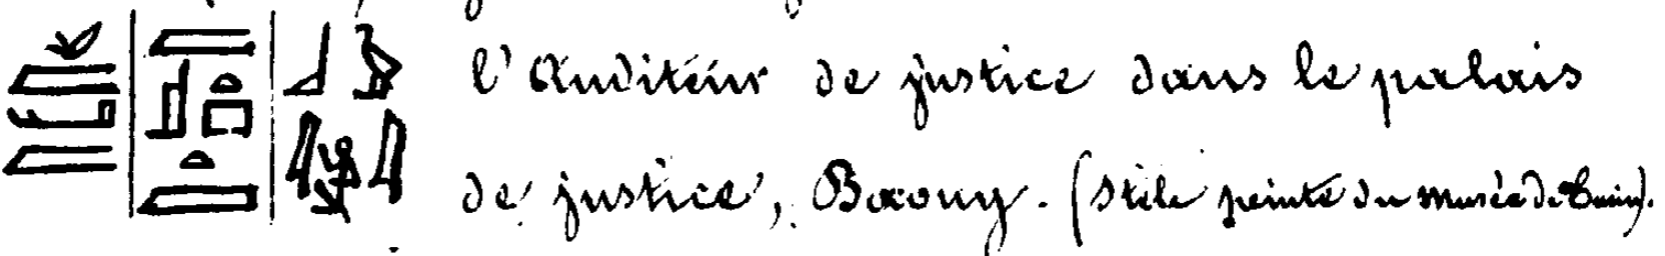 l'Auditeur de justice dans le palais
de justice, Baxouy. (Stèle peinte du musée de Turin).